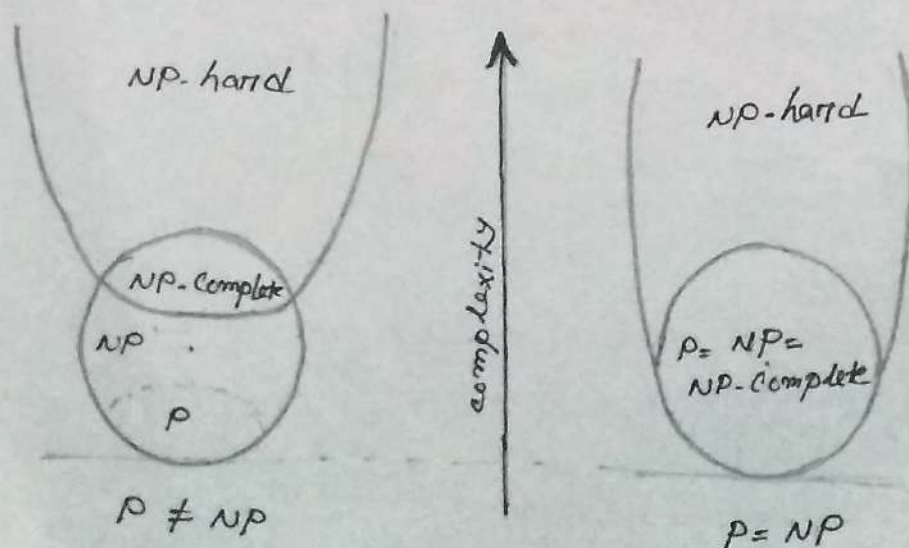 NP-hard
NP-Complete
NP
P
P ≠ NP
complexity
NP-hard
P= NP=
NP-Complete
P= NP